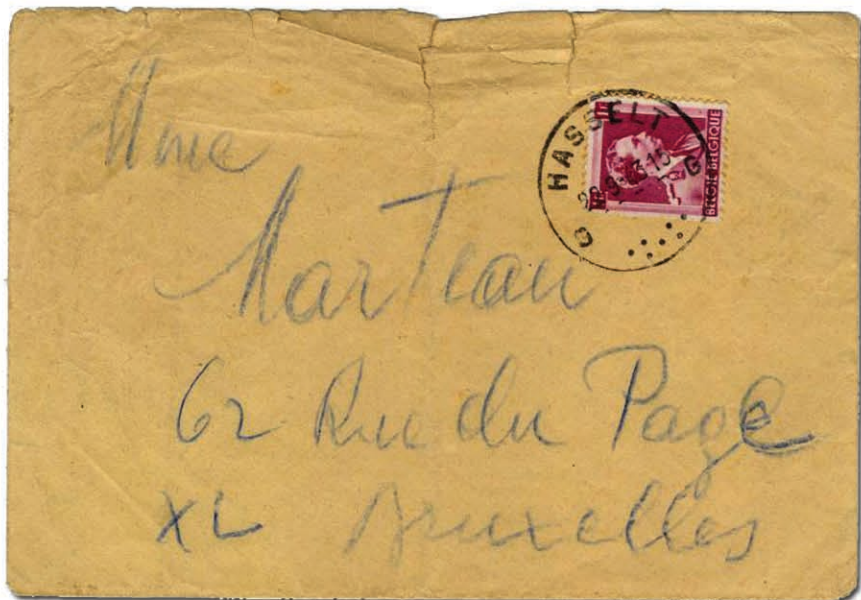 Mme
Marteau
62 Rue du Page
XL Bruxelles
HASSELT
BELGIE-BELGIQUE